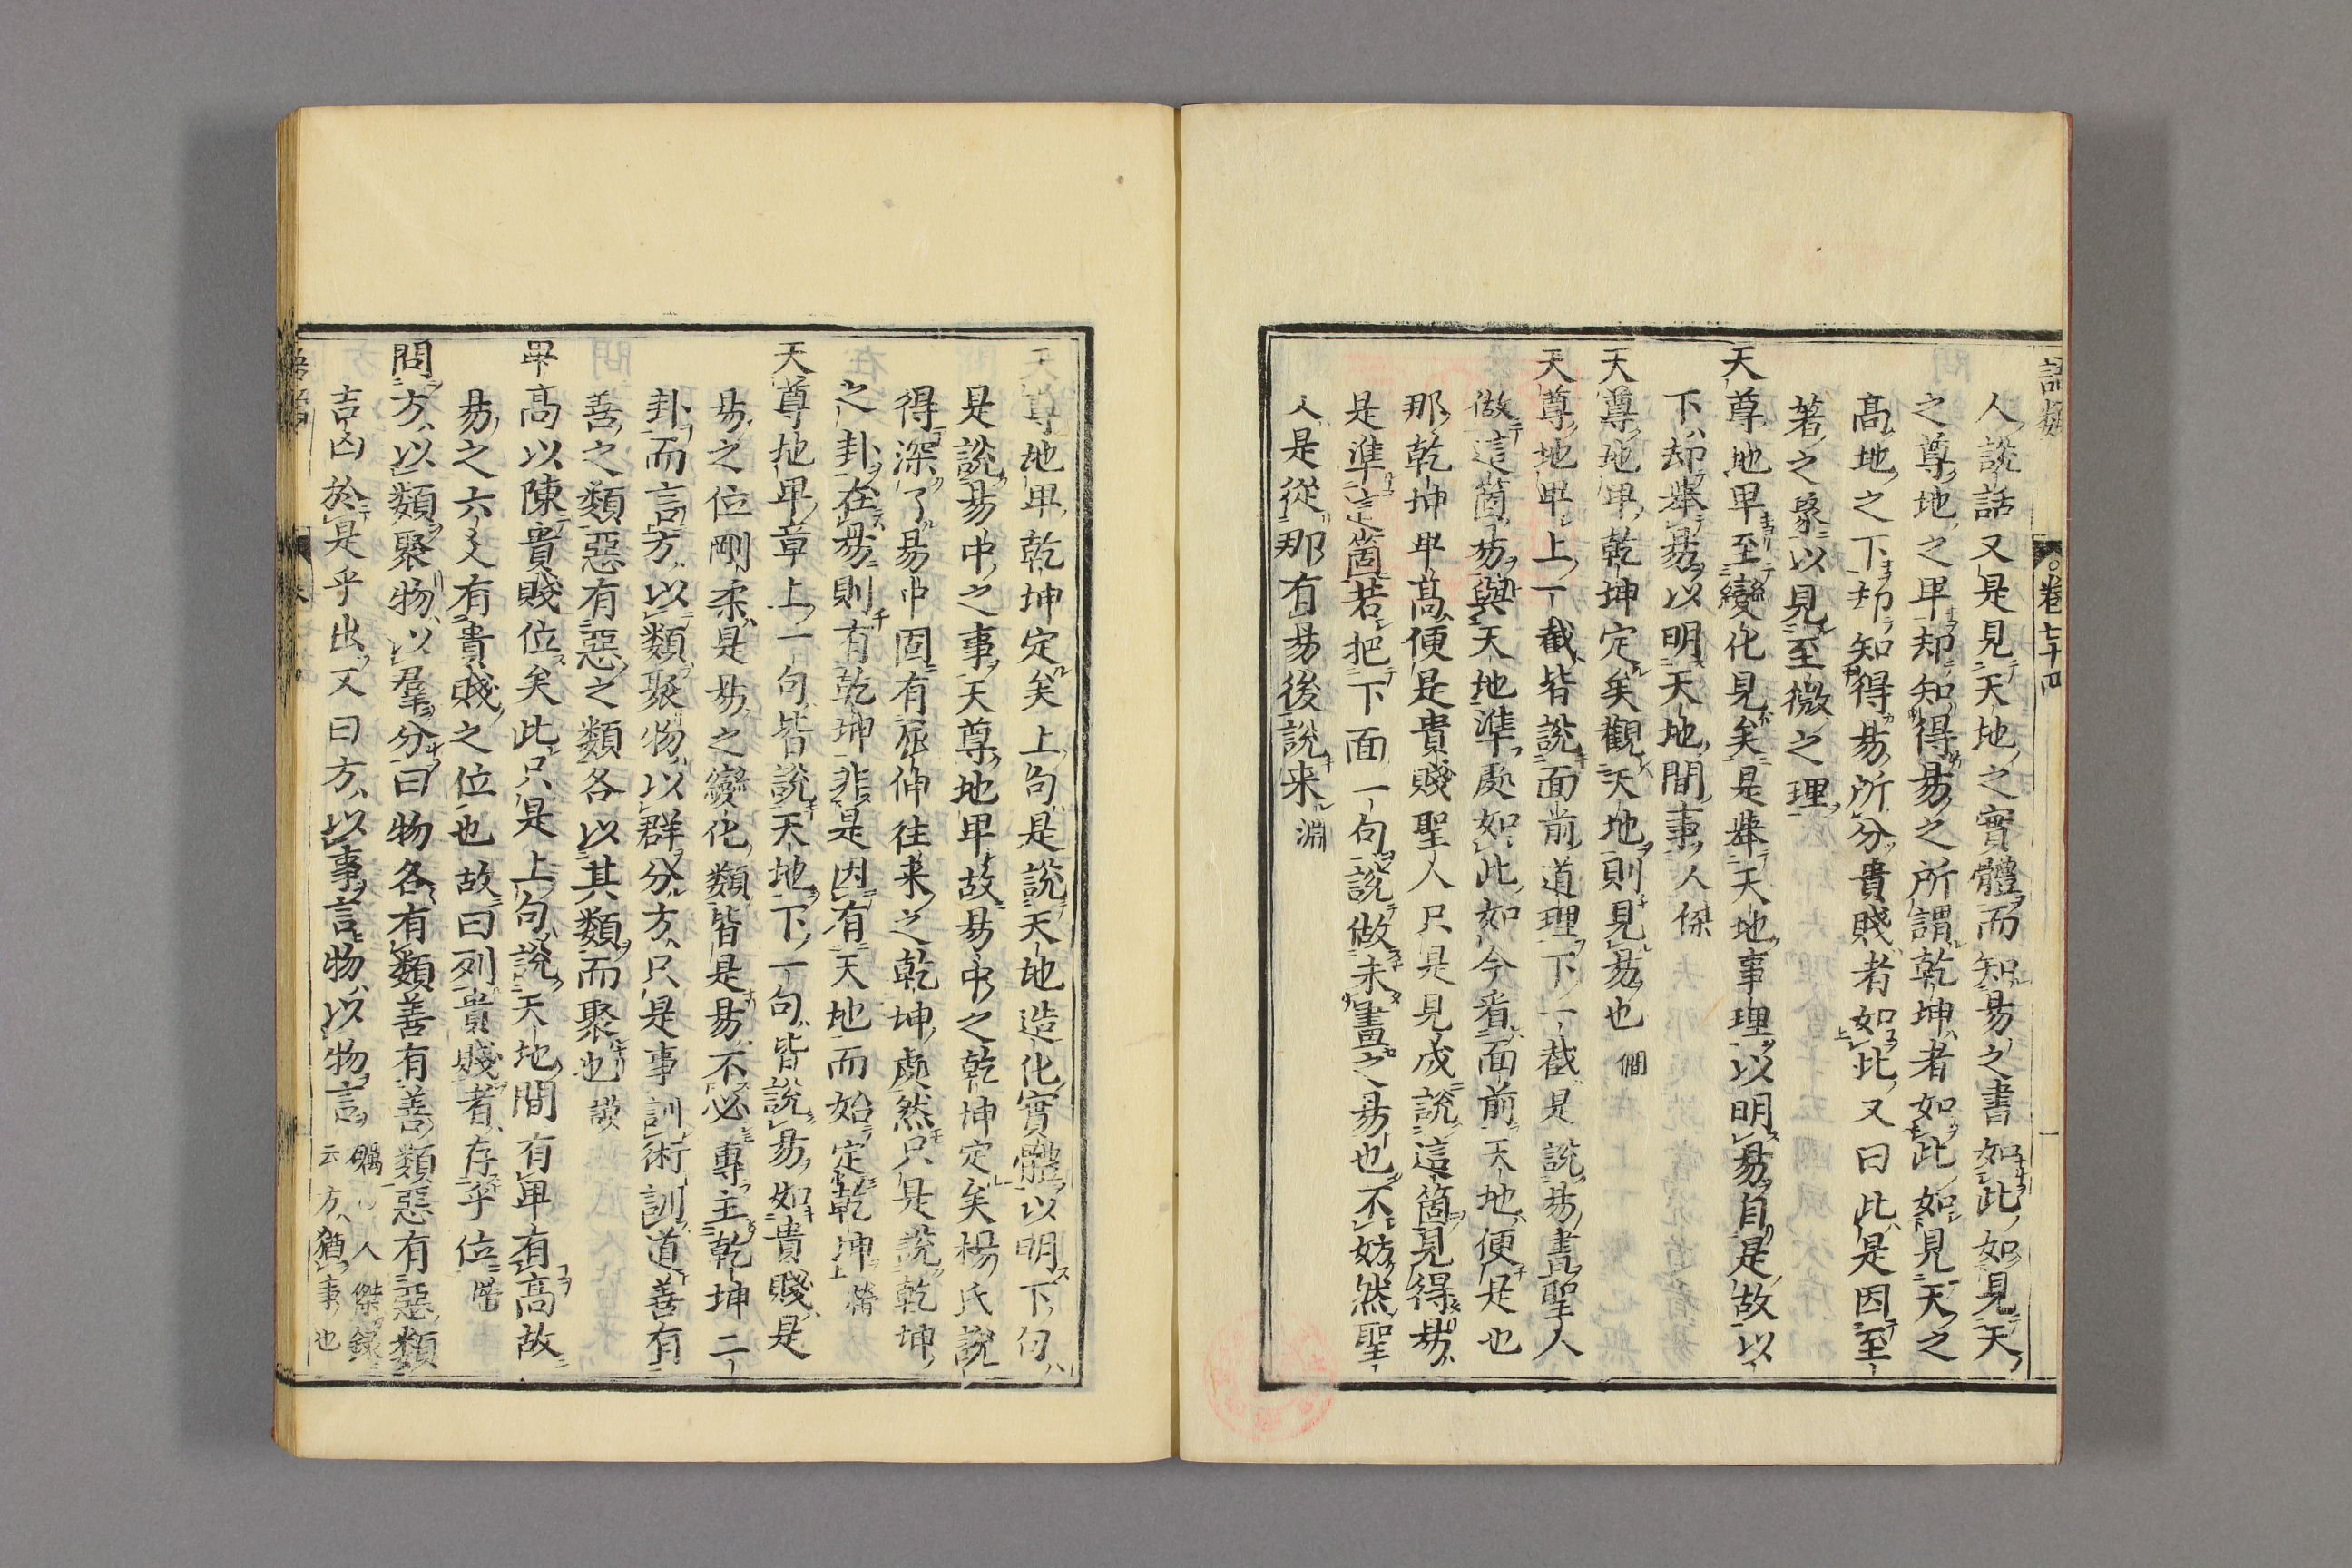 語類
卷七十四
一
人說話又是見天地之實體而知易之書如此如見天
之尊地之卑却知得易之所謂乾坤者如此如見天之
高地之下却知得易所分貴賤者如此又曰此是因至
著之象以見至微之理
天尊地卑至變化見矣是舉天地事理以明易自是故以
下却舉易以明天地間事人傑
天尊地卑乾坤定矣觀天地則見易也僩
天尊地卑上一截皆說面前道理下一截是說易書聖人
做這箇易與天地準處如此如今看面前天地便是他
那乾坤卑高便是貴賤聖人只是見成說這箇見得易
是準這箇若把下面一句說做未畫之易也不妨然聖
人是從那有易後說来淵
天尊地卑乾坤定矣上句是說天地造化實體以明下句
是說易中之事天尊地卑故易中之乾坤定矣楊氏說
得深了易中固有屈伸往来之乾坤處然只是說乾坤
之卦在易則有乾坤非是因有天地而始定乾坤㽦
天尊地卑章上一句皆說天地下一句皆說易如貴賤是
易之位剛柔是易之變化類皆是易不必專主乾坤二
卦而言方以類聚物以群分方只是事訓術訓道善有
善之類惡有惡之類各以其類而聚也謨
卑高以陳貴賤位矣此只是上句說天地間有卑有高故
易之六爻有貴賤之位也故曰列貴賤者存乎位㽦
問方以類聚物以羣分曰物各有類善有善類惡有惡類
吉凶於是乎出又曰方以事言物以物言礪 人傑錄
云方猶事也
語類